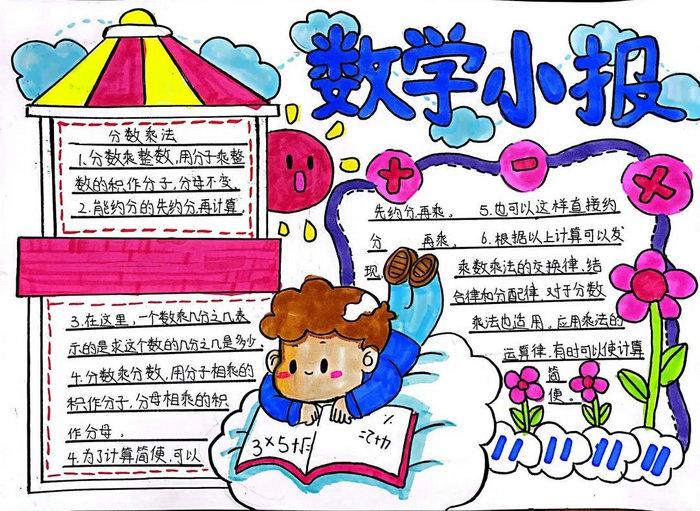 数学小报
分数乘法
1.分数乘整数,用分子乘整
数的积作分子,分母不变.
2.能约分的先约分,再计算.
3.在这里,一个数乘几分之几表
示的是求这个数的几分之几是多少.
4.分数乘分数,用分子相乘的
积作分子,分母相乘的积
作分母.
4.为了计算简便,可以
+
-
×
先约分,再乘。 5.也可以这样直接约
分 再乘。 6.根据以上计算可以发
现, 乘数乘法的交换律、结
合律和分配律,对于分数
乘法也适用,应用乘法的
运算律,有时可以使计算
简
便。
3×5+1=